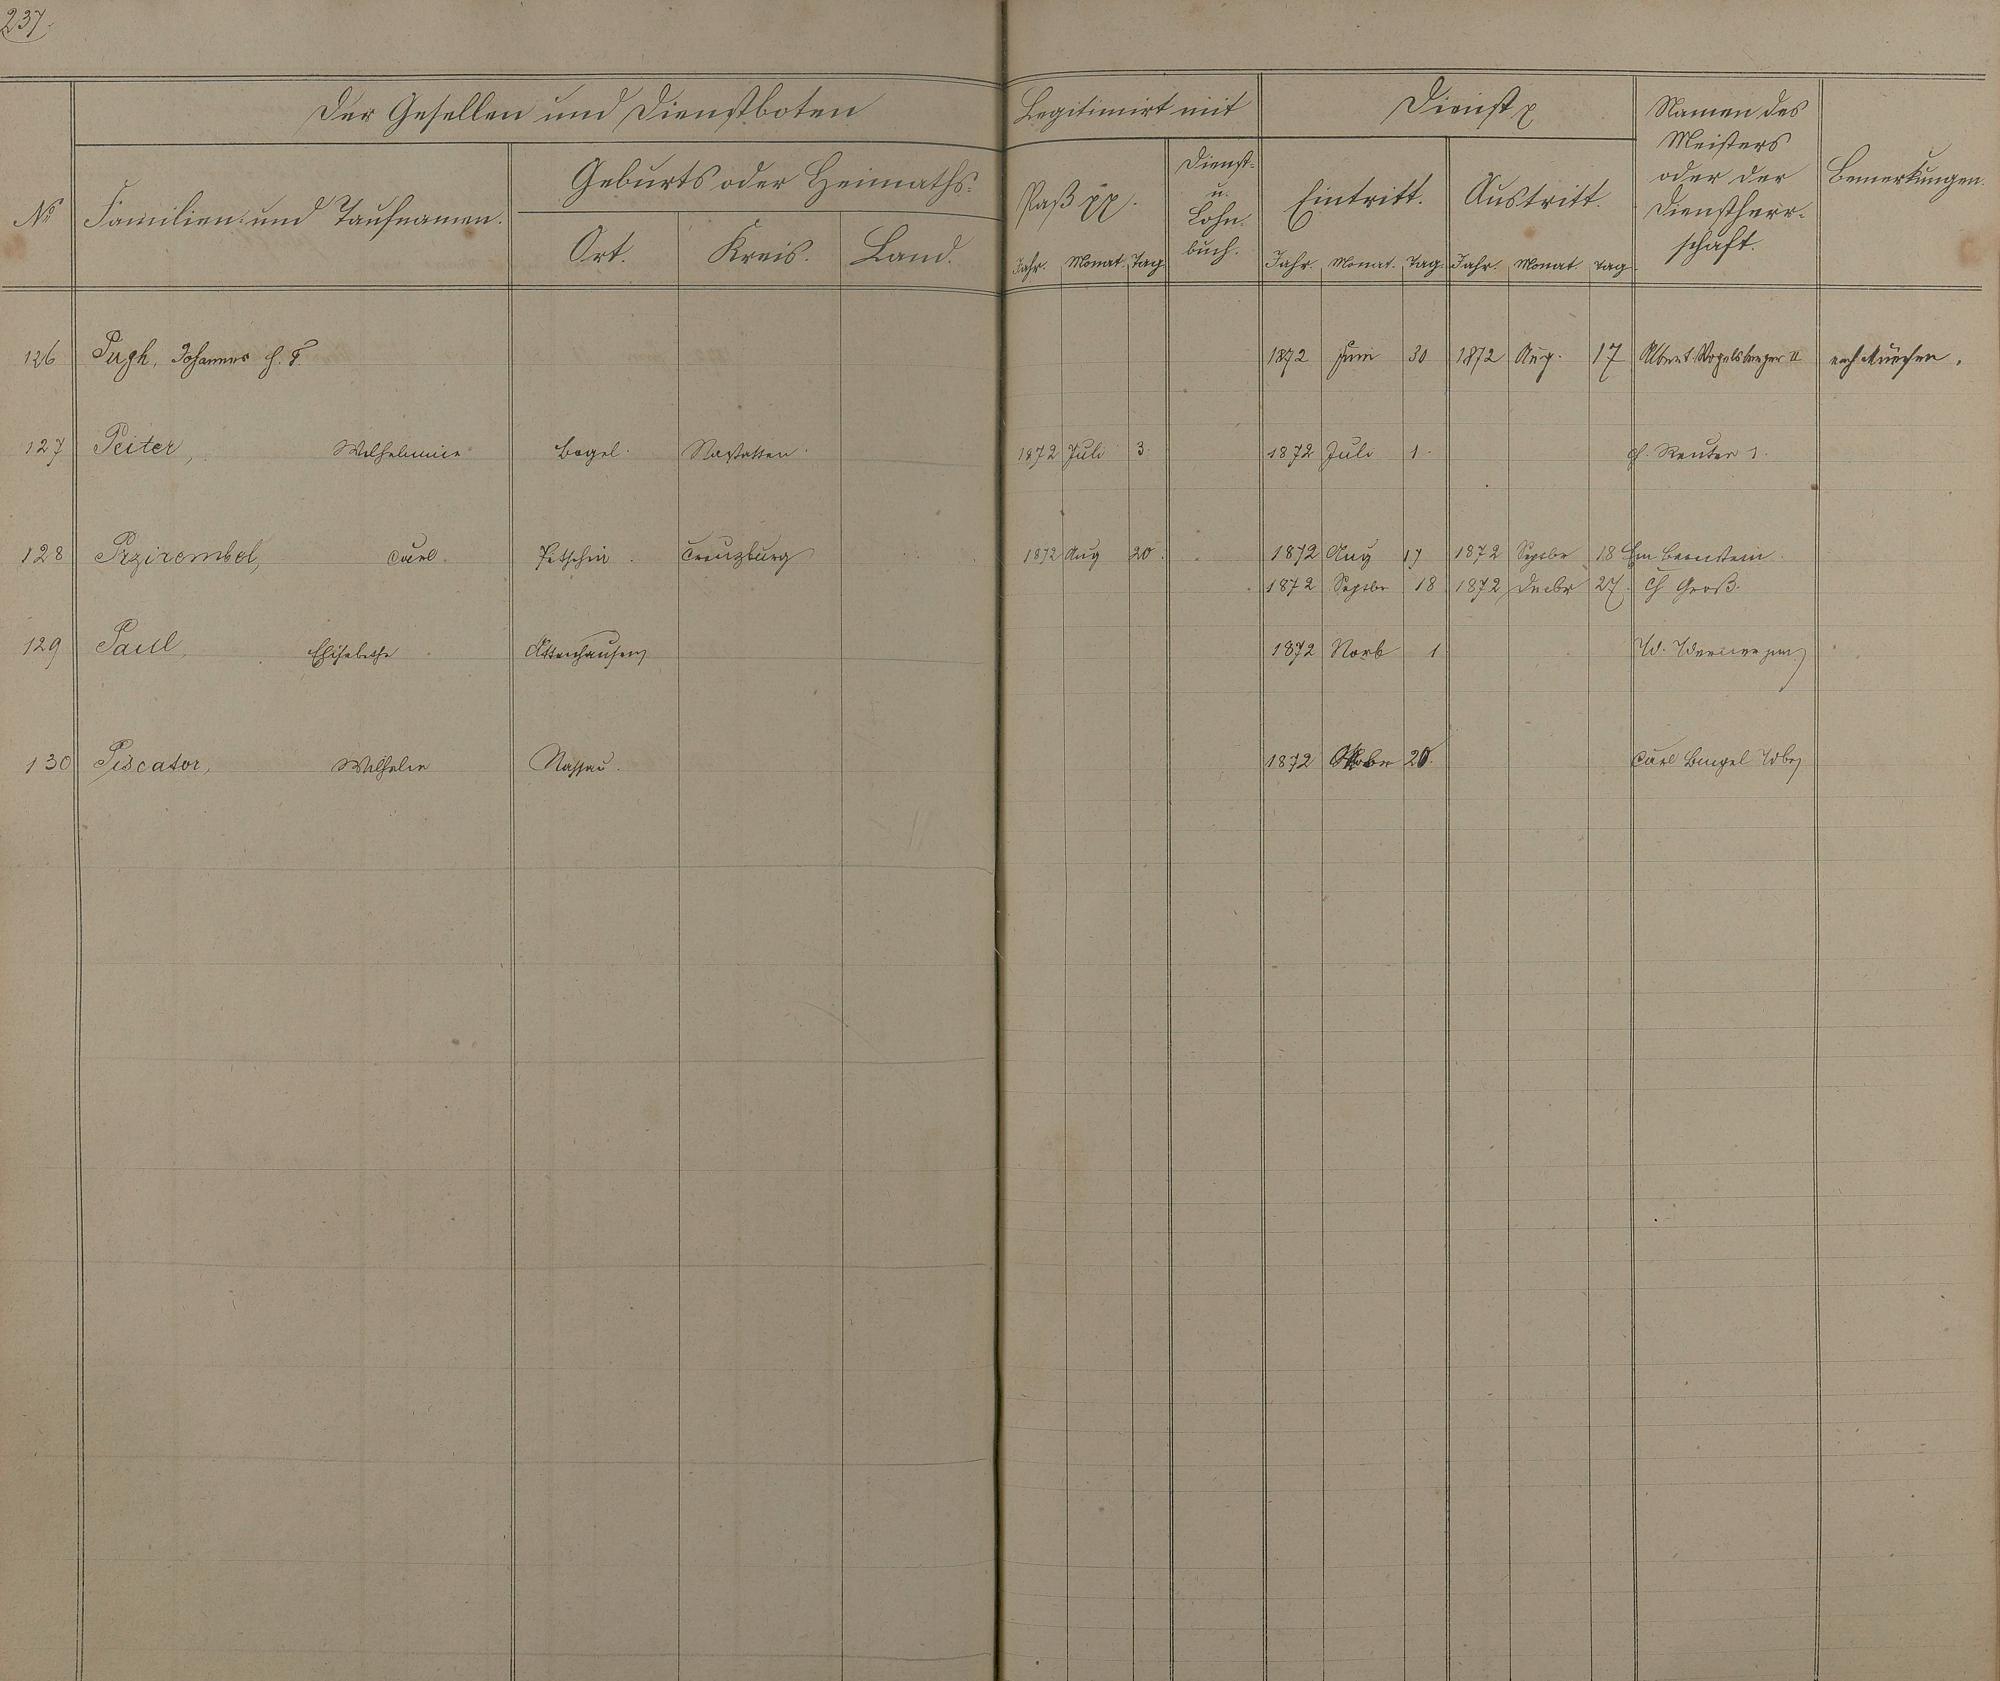 237.
Der Gesellen und Dienstboten
Legitimirt mit
Dienst
Namen des Meisters oder der Dienstherr-schaft.
Bemerkungen.
No
Familien- und Taufnamen.
Geburts oder Heimaths-
Ort. Kreis. Land.
Paß
Dienst- u. Lohn-buch.
Eintritt. Austritt.
Jahr. Monat. Tag Jahr. Monat. Tag. Jahr. Monat. Tag
126 Johannes 1872 Juni 30 1872 Aug. 17 Albert Vogelsberger II
127 Peiter, Wilhelmine Bogel. Nastätten. 1872 Juli 3. 1872 Juli 1. Reuter 1.
128 Przirembel, Carl. Pitschin. Creuzburg 1872 Aug 20. 1872 Aug 17 1872 Septbr 18 Em Bernstein.
1872 Septbr 18 1872 Decbr 27. Ch Groß.
129 Paul, Elisabethe Attenhausen 1872 Novb 1 W. Werner jun
130 Piscator, Wilhelm Nassau. 1872 20. Carl Bingel